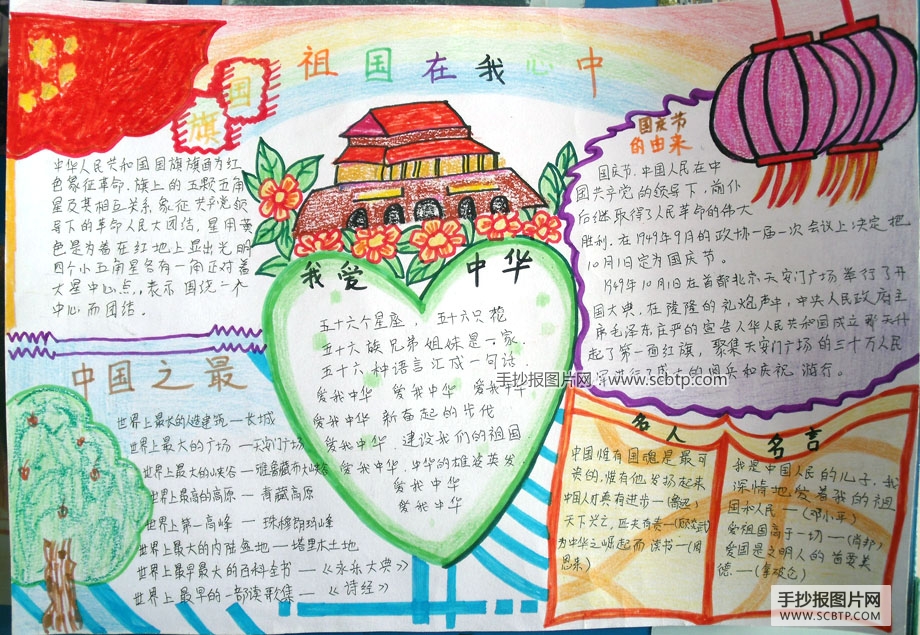 祖国在我心中
国旗
中华人民共和国国旗旗面为红
色象征革命.旗上的五颗五角
星及其相互关系,象征共产党领
导下的革命人民大团结,星用黄
色是为着在红地上显出光明
四个小五角星各有一角正对着
大星中心点,表示围绕一个
中心而团结.
中国之最
世界上最长的人造建筑—长城
世界上最大的广场—天安门广场
世界上最大的峡谷—雅鲁藏布大峡谷
世界上最高的高原—青藏高原
世界上第一高峰—珠穆朗玛峰
世界上最大的内陆盆地—塔里木土地
世界上最早最大的百科全书—《永乐大典》
世界上最早的一部诗歌集—《诗经》
我爱中华
五十六个星座,五十六只花
五十六族兄弟姐妹是一家.
五十六种语言汇成一句话.
爱我中华 爱我中华 爱我中华
爱我中华 新奋起的步伐
爱我中华.建设我们的祖国.
爱我中华.中华的雄姿英发.
爱我中华
爱我中华
国庆节
的由来
国庆节.中国人民在中
国共产党的领导下.前仆
后继取得了人民革命的伟大
胜利.在1949年9月的政协一届一次会议上决定把
10月1日定为国庆节。
1949年10月1日在首都北京天安门广场举行了开
国大典.在隆隆的礼炮声中,中央人民政府主
席毛泽东庄严的宣告人华人民共和国成立那天升
起了第一面红旗,聚集天安门广场的三十万人民
军进行了 的阅兵和庆祝游行。
名人
中国惟有国魂是最可
贵的,惟有他发扬起来
中国人才真有进步—(鲁迅)
天下兴亡,匹夫有责—(顾炎武)
为中华之崛起而读书—(周
恩来)
名言
我是中国人民的儿子.我
深情地爱着我的祖
国和人民—(邓小平)
爱祖国高于一切—(肖邦)
爱国是文明人的首要美
德—(拿破仑)
手抄报图片网:www.scbtp.com
手抄报图片网
WWW.SCBTP.COM